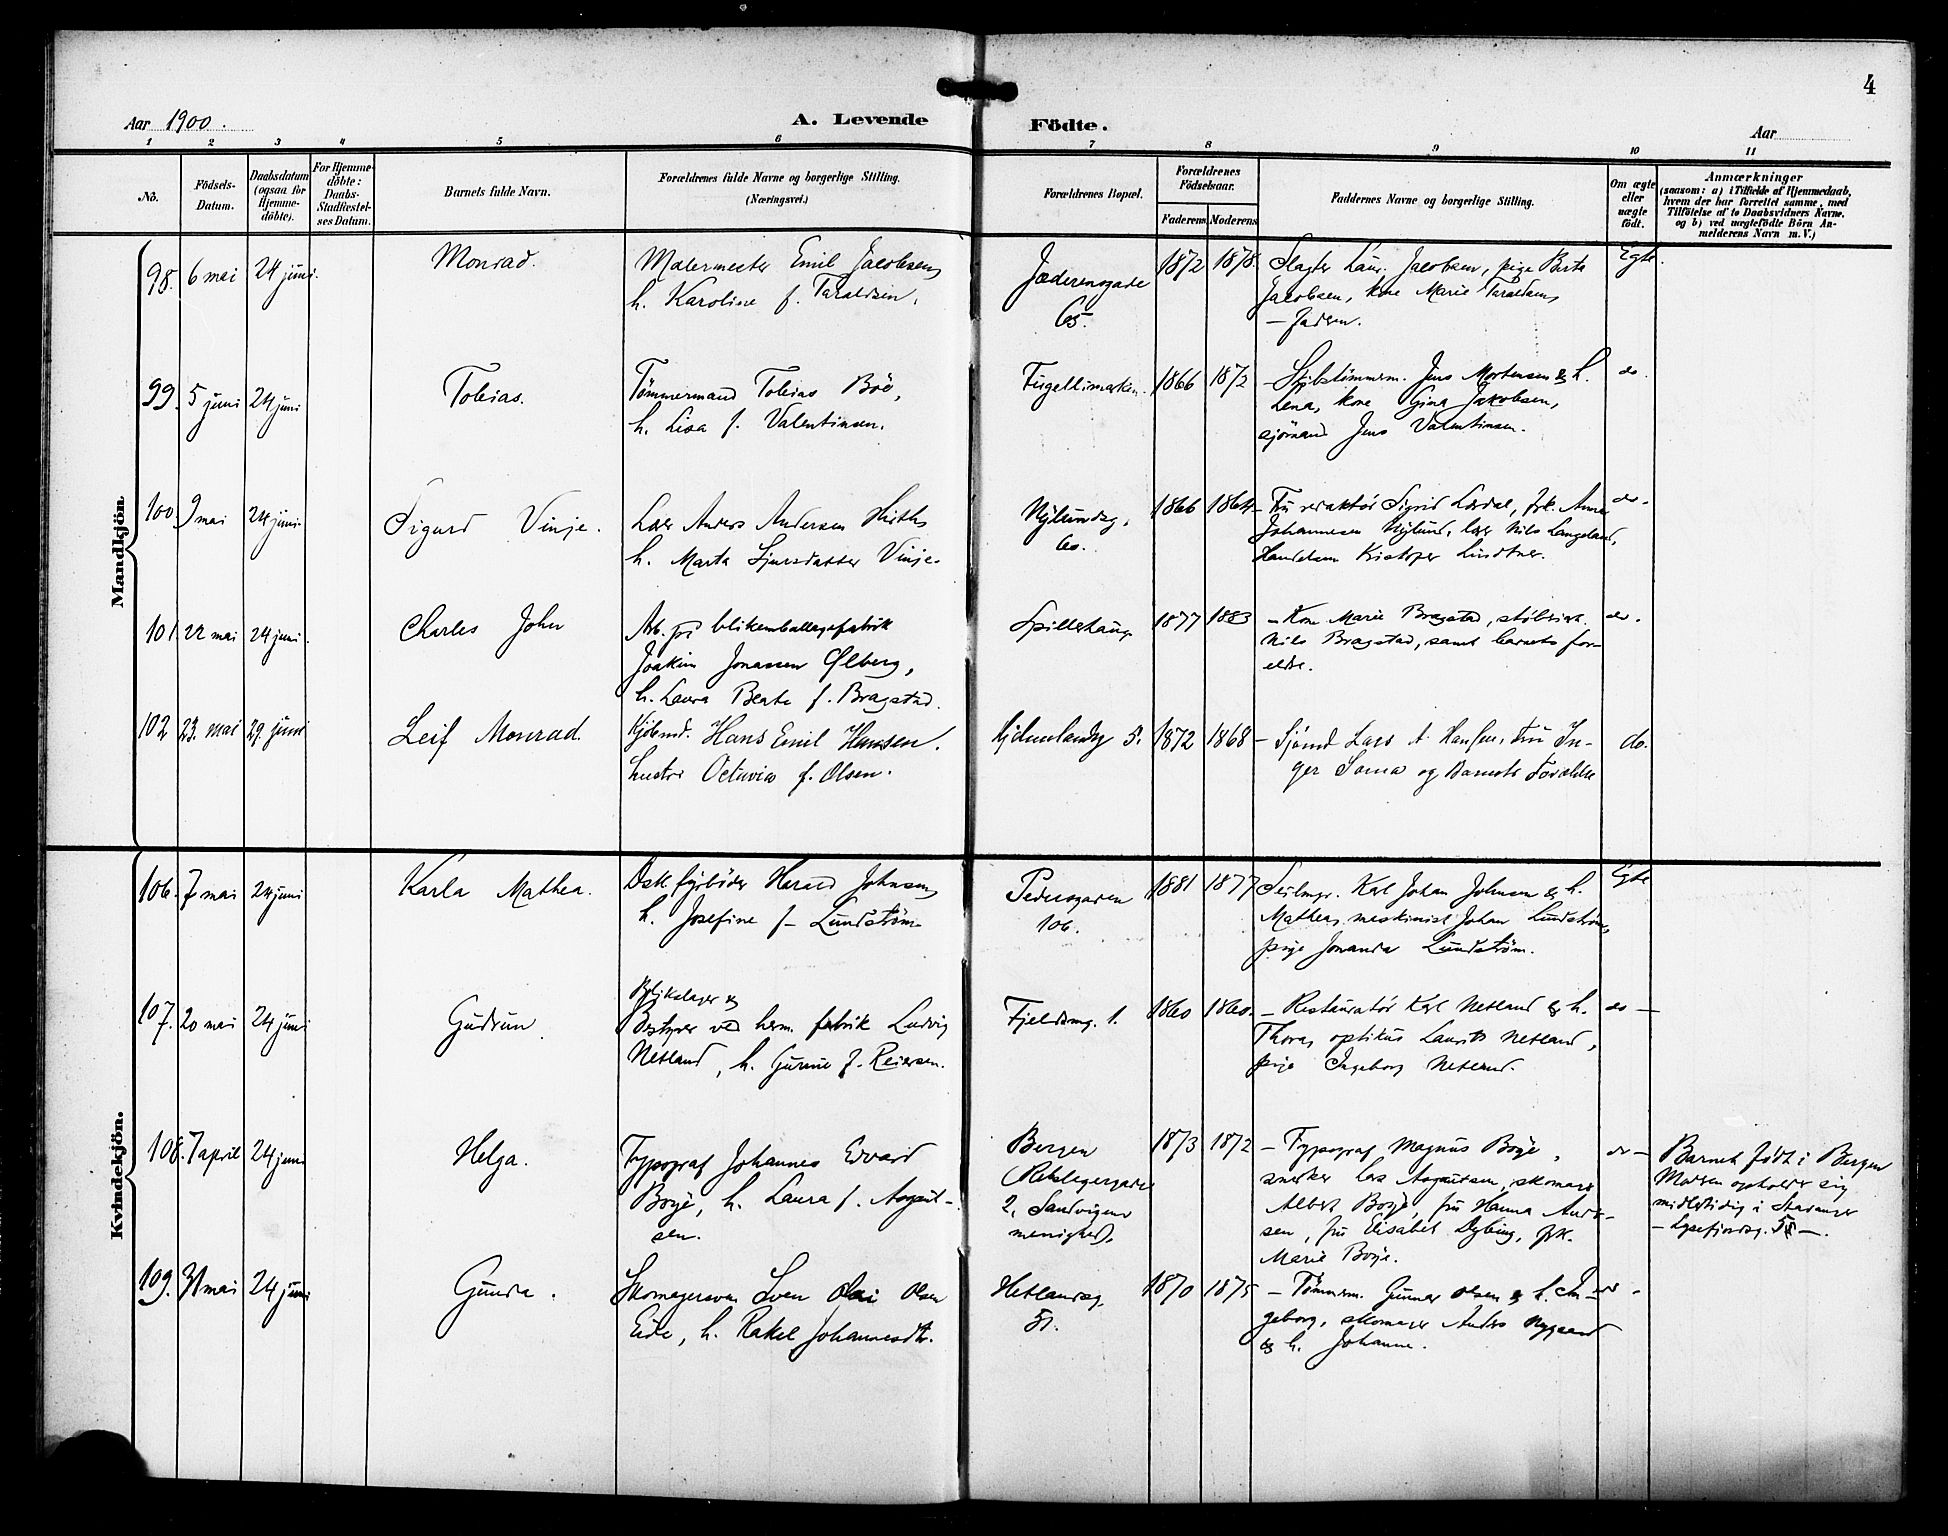 4
Aar 1900.
A. Levende Födte.
Aar
1 2 3 4 5 6 7 8 9 10 11
No.
Födsels-
Datum.
Daabsdatum
(ogsaa for
Hjemme-
döbte).
For Hjemme-
döbte:
Daabs-
Stadfæstel-
ses Datum.
Barnets fulde Navn.
Forældrenes fulde Navne og borgerlige Stilling.
(Næringsvei.)
Forældrenes Bopæl.
Forældrenes
Födselsaar.
Faderens Moderens
Faddernes Navne og borgerlige Stilling.
Om ægte
eller
uægte
födt.
Anmærkninger
(saasom: a) i Tilfælde af Hjemmedaab,
hvem der har forrettet samme, med
Tilföielse af to Daabsvidners Navne.
og b) ved uægtefödte Börn An-
melderens Navn m. V.)
Mandkjön
98. 6 mai 24 juni.
Monrad.
Malermester Emil Jacobsen,
h. Karoline f. Taraldsen.
Jæderensgade
65.
1872 1878.
Slagter Laur. Jacobsen, pige Berta
Jacobsen, kone Marie Taraldsen,
– Faderen.
Egte.
99. 5 juni 24 juni
Tobias.
Tömmermand Tobias Böe,
h. Lisa f. Valentinsen.
Fugellimarken.
1866 1872
– Skibstömmerm. Jens Mortensen & h.
Lena, kone Gina Jakobsen,
sjömand Jens Valentinsen.
do.
100. 9 mai 24 juni.
Sigurd Vinje.
Lærer Anders Andersen Hirth,
h. Marta Sjursdatter Vinje.
Nylundsg.
60.
1866 1864
– Fru redaktör Sigrid Lærdal, frk. Anna
Johannesen Nylund, lærer Nils Langeland,
Handelsm Kristofer Lindtner.
do.
101. 22 mai 24 juni.
Charles John
Arb. på blikemballagefabrik
Joakim Jonassen Ølberg,
h. Laura Beate f. Bragstad.
Spillehaug.
1877 1883
– Kone Marie Bragstad,
Nils Bragstad, samt barnets for-
eldre.
do.
102 23. mai 29. juni
Leif Monrad.
Kjöbmd. Hans Emil Hansen.
hustru Octavia f. Olsen.
5.
1872 1868
– Sjömd Lars A. Hansen, Fru In-
ger Soma og Barnets Forældre
do.
Kvindekjön.
106. 7 mai 24 juni
Karla Mathea.
Dsk. fyrböder Harald Johnsen,
h. Josefine f– Lundström
Pedersgaden
106.
1881 1877
Seilmgr. Karl Johan Johnsen & h.
Mathea, maskinist Johan Lundström,
pige Jonanda Lundström.
Egte
107. 20 mai 24 juni
Gudrun.
Blikslager og
Bestyrer ved herm. fabrik Ludvig
Netland, h. Gurine f. Reiersen.
Fjeldsmg. 1.
1860 1860.
– Restauratör Karl Netland & h.
Thora, optikus Laurits Netland,
pige Ingeborg Netland.
do –
108. 7 april 24 juni
Helga.
Typograf Johannes Edvard
Boye, h. Laura f. August-
sen.
Bergen
(Rebslagergade
2, Sandvigens
menighed).
1873 1872
– Typograf Magnus Boye,
snekker Lars Augustsen, skomager
Albert Boye, fru Hanna Andr-
sen, fru Elisabet Dybing, frk.
Marie Boye.
do –
Barnet födt i Bergen
Moderen opholder sig
midlertidig i Stavanger
– Lysefjordsg. 58 –.
109. 31 mai 24 juni
Gunda.
Skomagersven Sven Olai Olsen
Eide, h. Rakel Johannesdtr.
Hetlandsg.
51.
1870 1875
– Tömmerm. Gunnar Olsen & h. In-
geborg, skomager Anders Nygaard
& h. Johanne.
do.